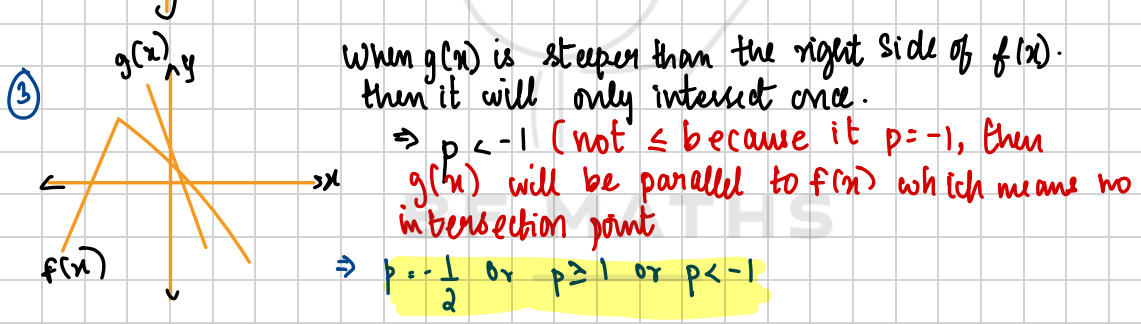 g(x)
y
③
When g(x) is steeper than the right side of f(x).
then it will only intersect once.
⇒ p < -1 (not ≤ because it p=-1, then
x
g(x) will be parallel to f(x) which means no
MATHS
intersection point
f(x)
⇒ p = -1/2 or p ≥ 1 or p < -1